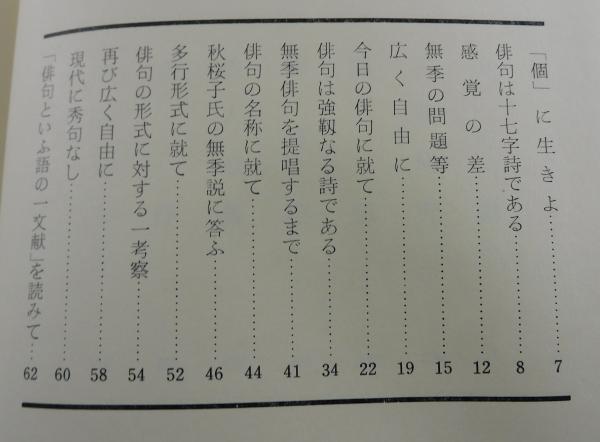 「個」に生きよ……………7
俳句は十七字詩である……………8
感覚の差……………12
無季の問題等……………15
広く自由に……………19
今日の俳句に就て……………22
俳句は強靱なる詩である……………34
無季俳句を提唱するまで……………41
俳句の名称に就て……………44
秋桜子氏の無季説に答ふ……………46
多行形式に就て……………52
俳句の形式に対する一考察……………54
再び広く自由に……………58
現代に秀句なし……………60
「俳句といふ語の一文献」を読みて……62